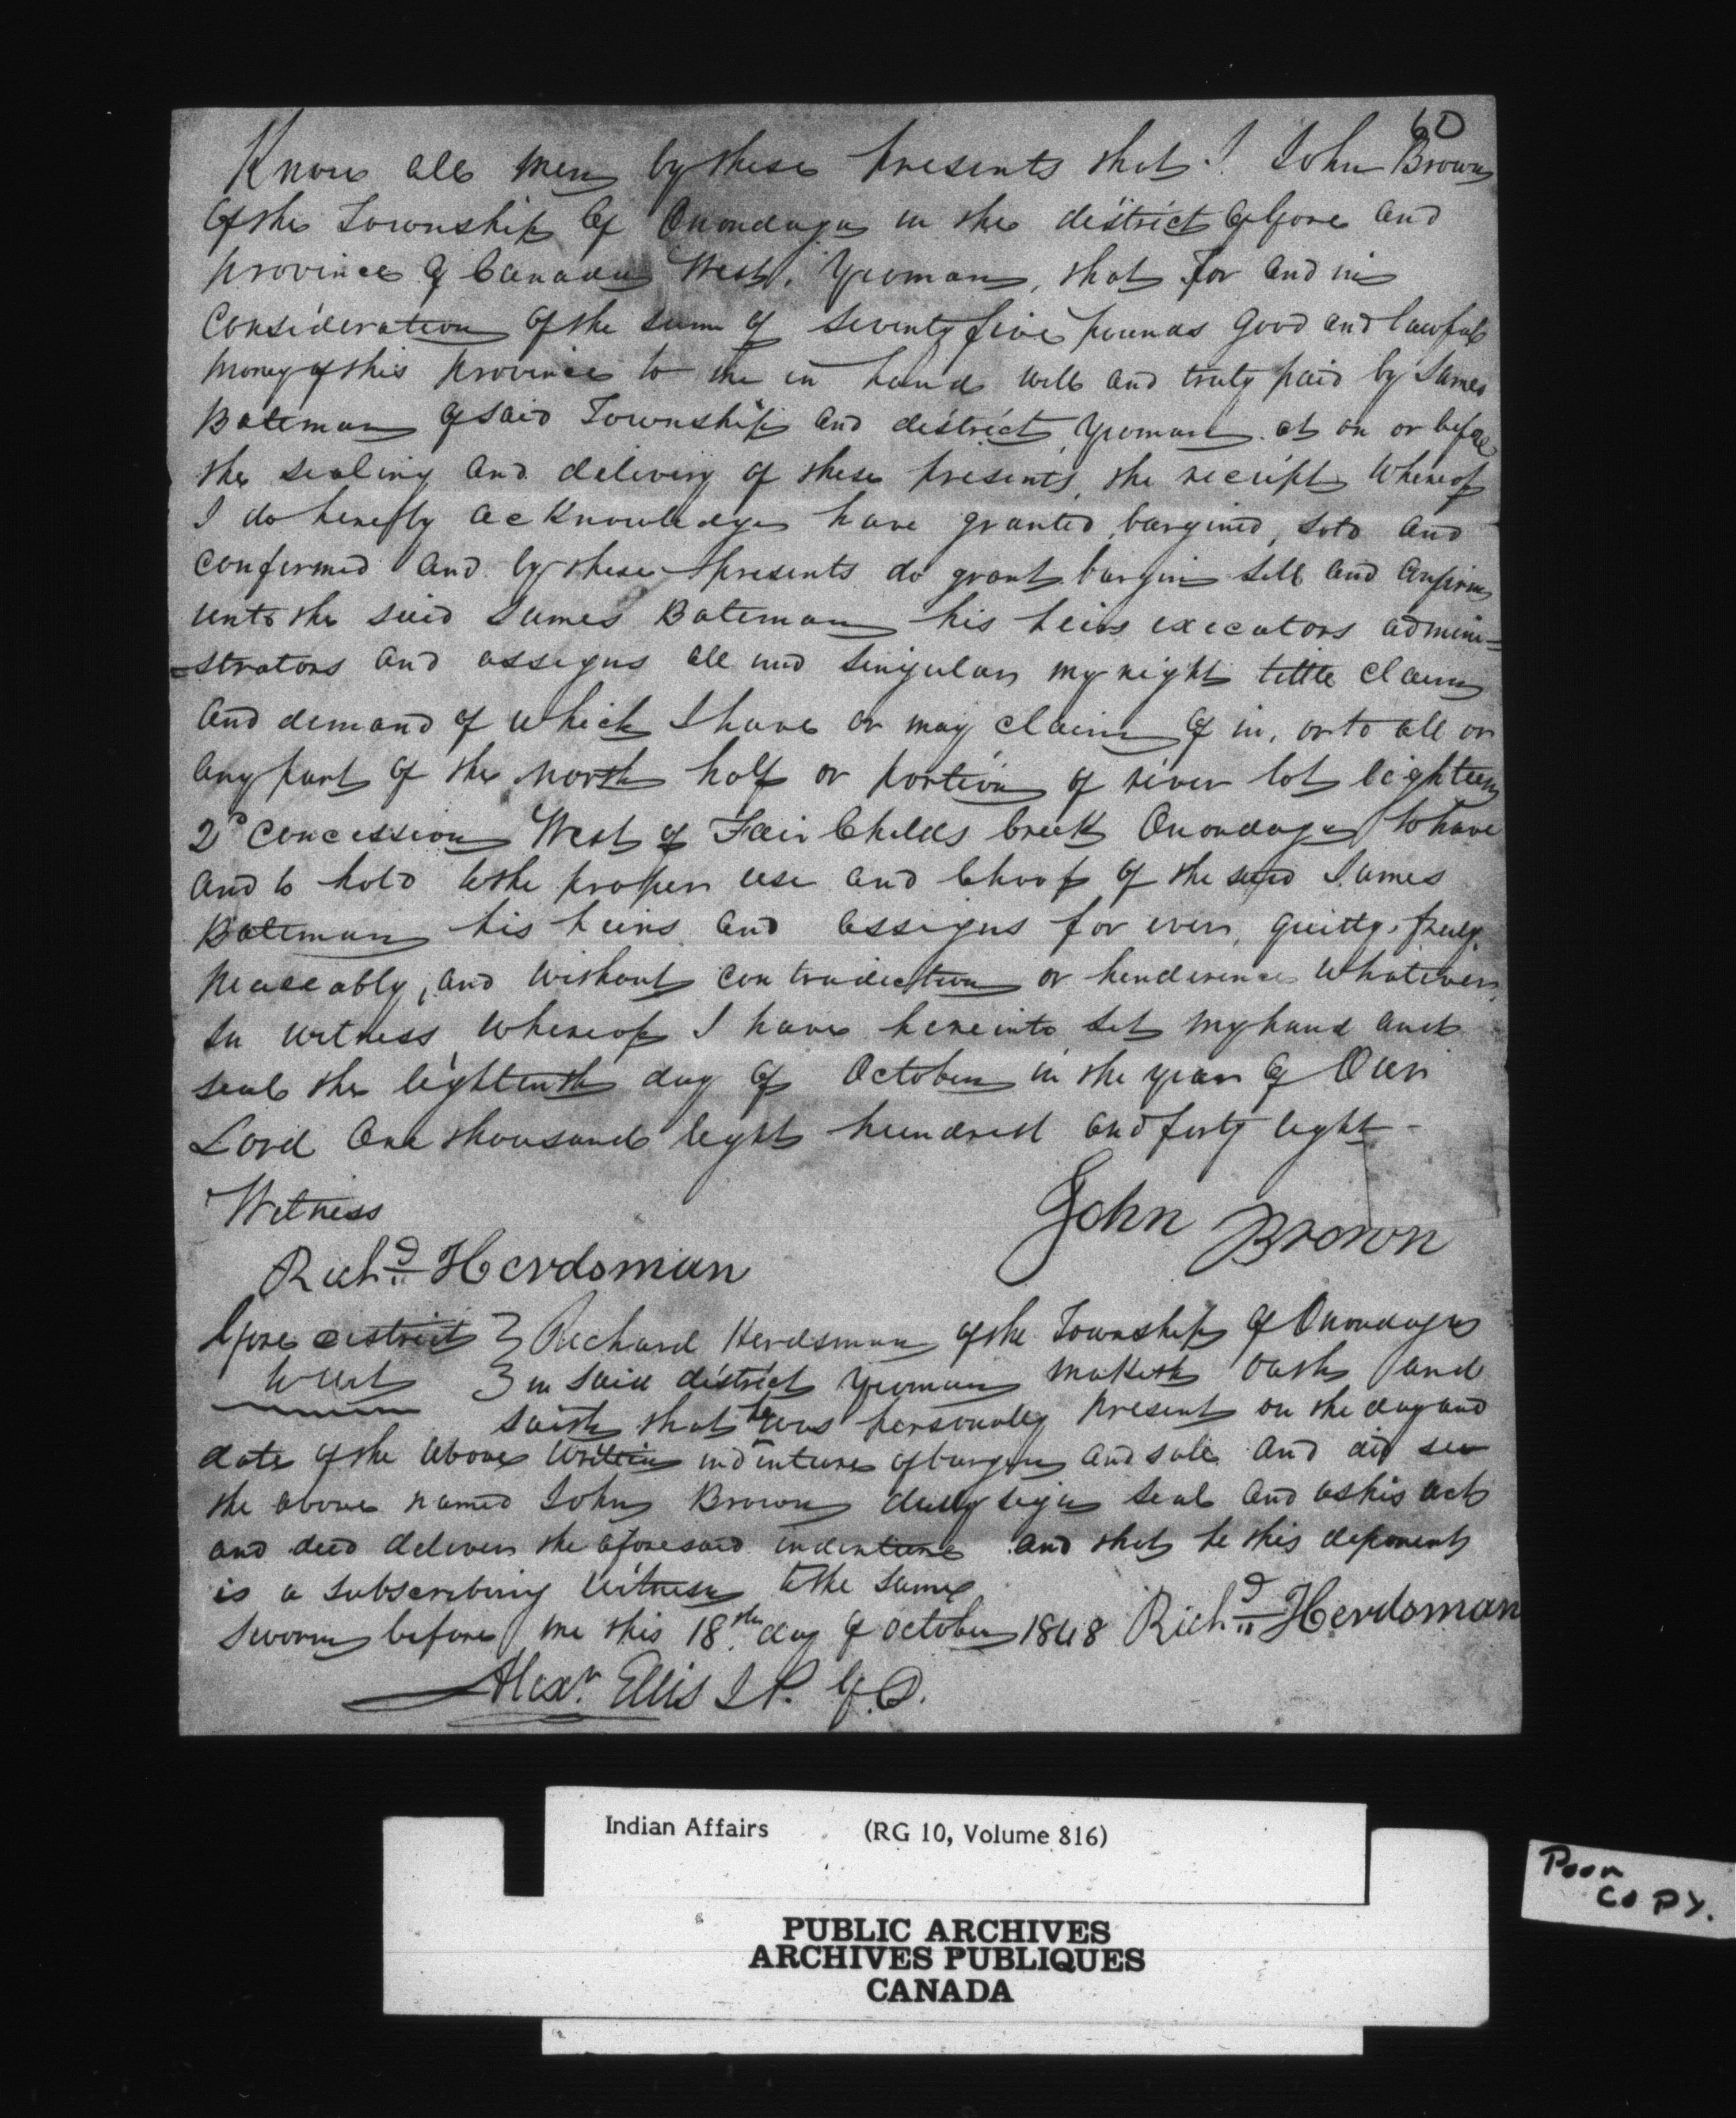 60
Know all men by these presents that I John Brown
of the Township of Onondaga in the district of Gore and
province of Canada West, Yeoman, that for and in
consideration of the sum of seventy five pounds good and lawful
money of this province to me in hand well and truly paid by James
Bateman of said Township and district Yeoman at on or before
the sealing and delivery of these presents, the receipt whereof
I do hereby acknowledge have granted, bargined, sold and
confirmed and by these presents do grant bargin sell and confirm
unto the said James Bateman his heirs executors admini=
=strators and assigns all and singular my right tittle claim
and demand of which I have or may claim of in, or to all or
any part of the north half or portion of river lot eighteen
2d concession West of Fair Childs creek Onondaga to have
and to hold to the proper use and behoof of the said James
Bateman his heirs and assigns for ever, quitly, freely,
peaceably, and without contradiction or henderence whatever,
In witness whereof I have hereinto set my hand and
seal the eightenth day of October in the year of Our
Lord One thousand eight hundred and forty eight -
Witness
John Brown
Richd Herdsman
Gore district } Richard Herdsman of the Township of Onondaga
to wit } in said district Yeoman maketh oath and
saith that he was personally present on the day and
date of the above indenture of bargin and sale and did see
the above named John Brown duly sign seal and as his act
and deed deliver the aforesaid indenture and that he this deponent
is a subscribing witness to the same
Sworn before me this 18th day of October 1848 Richd Herdsman
Alexr. Ellis J.P. G.D.
Indian Affairs (RG 10, Volume 816)
PUBLIC ARCHIVES
ARCHIVES PUBLIQUES
CANADA
Poor
COPY.